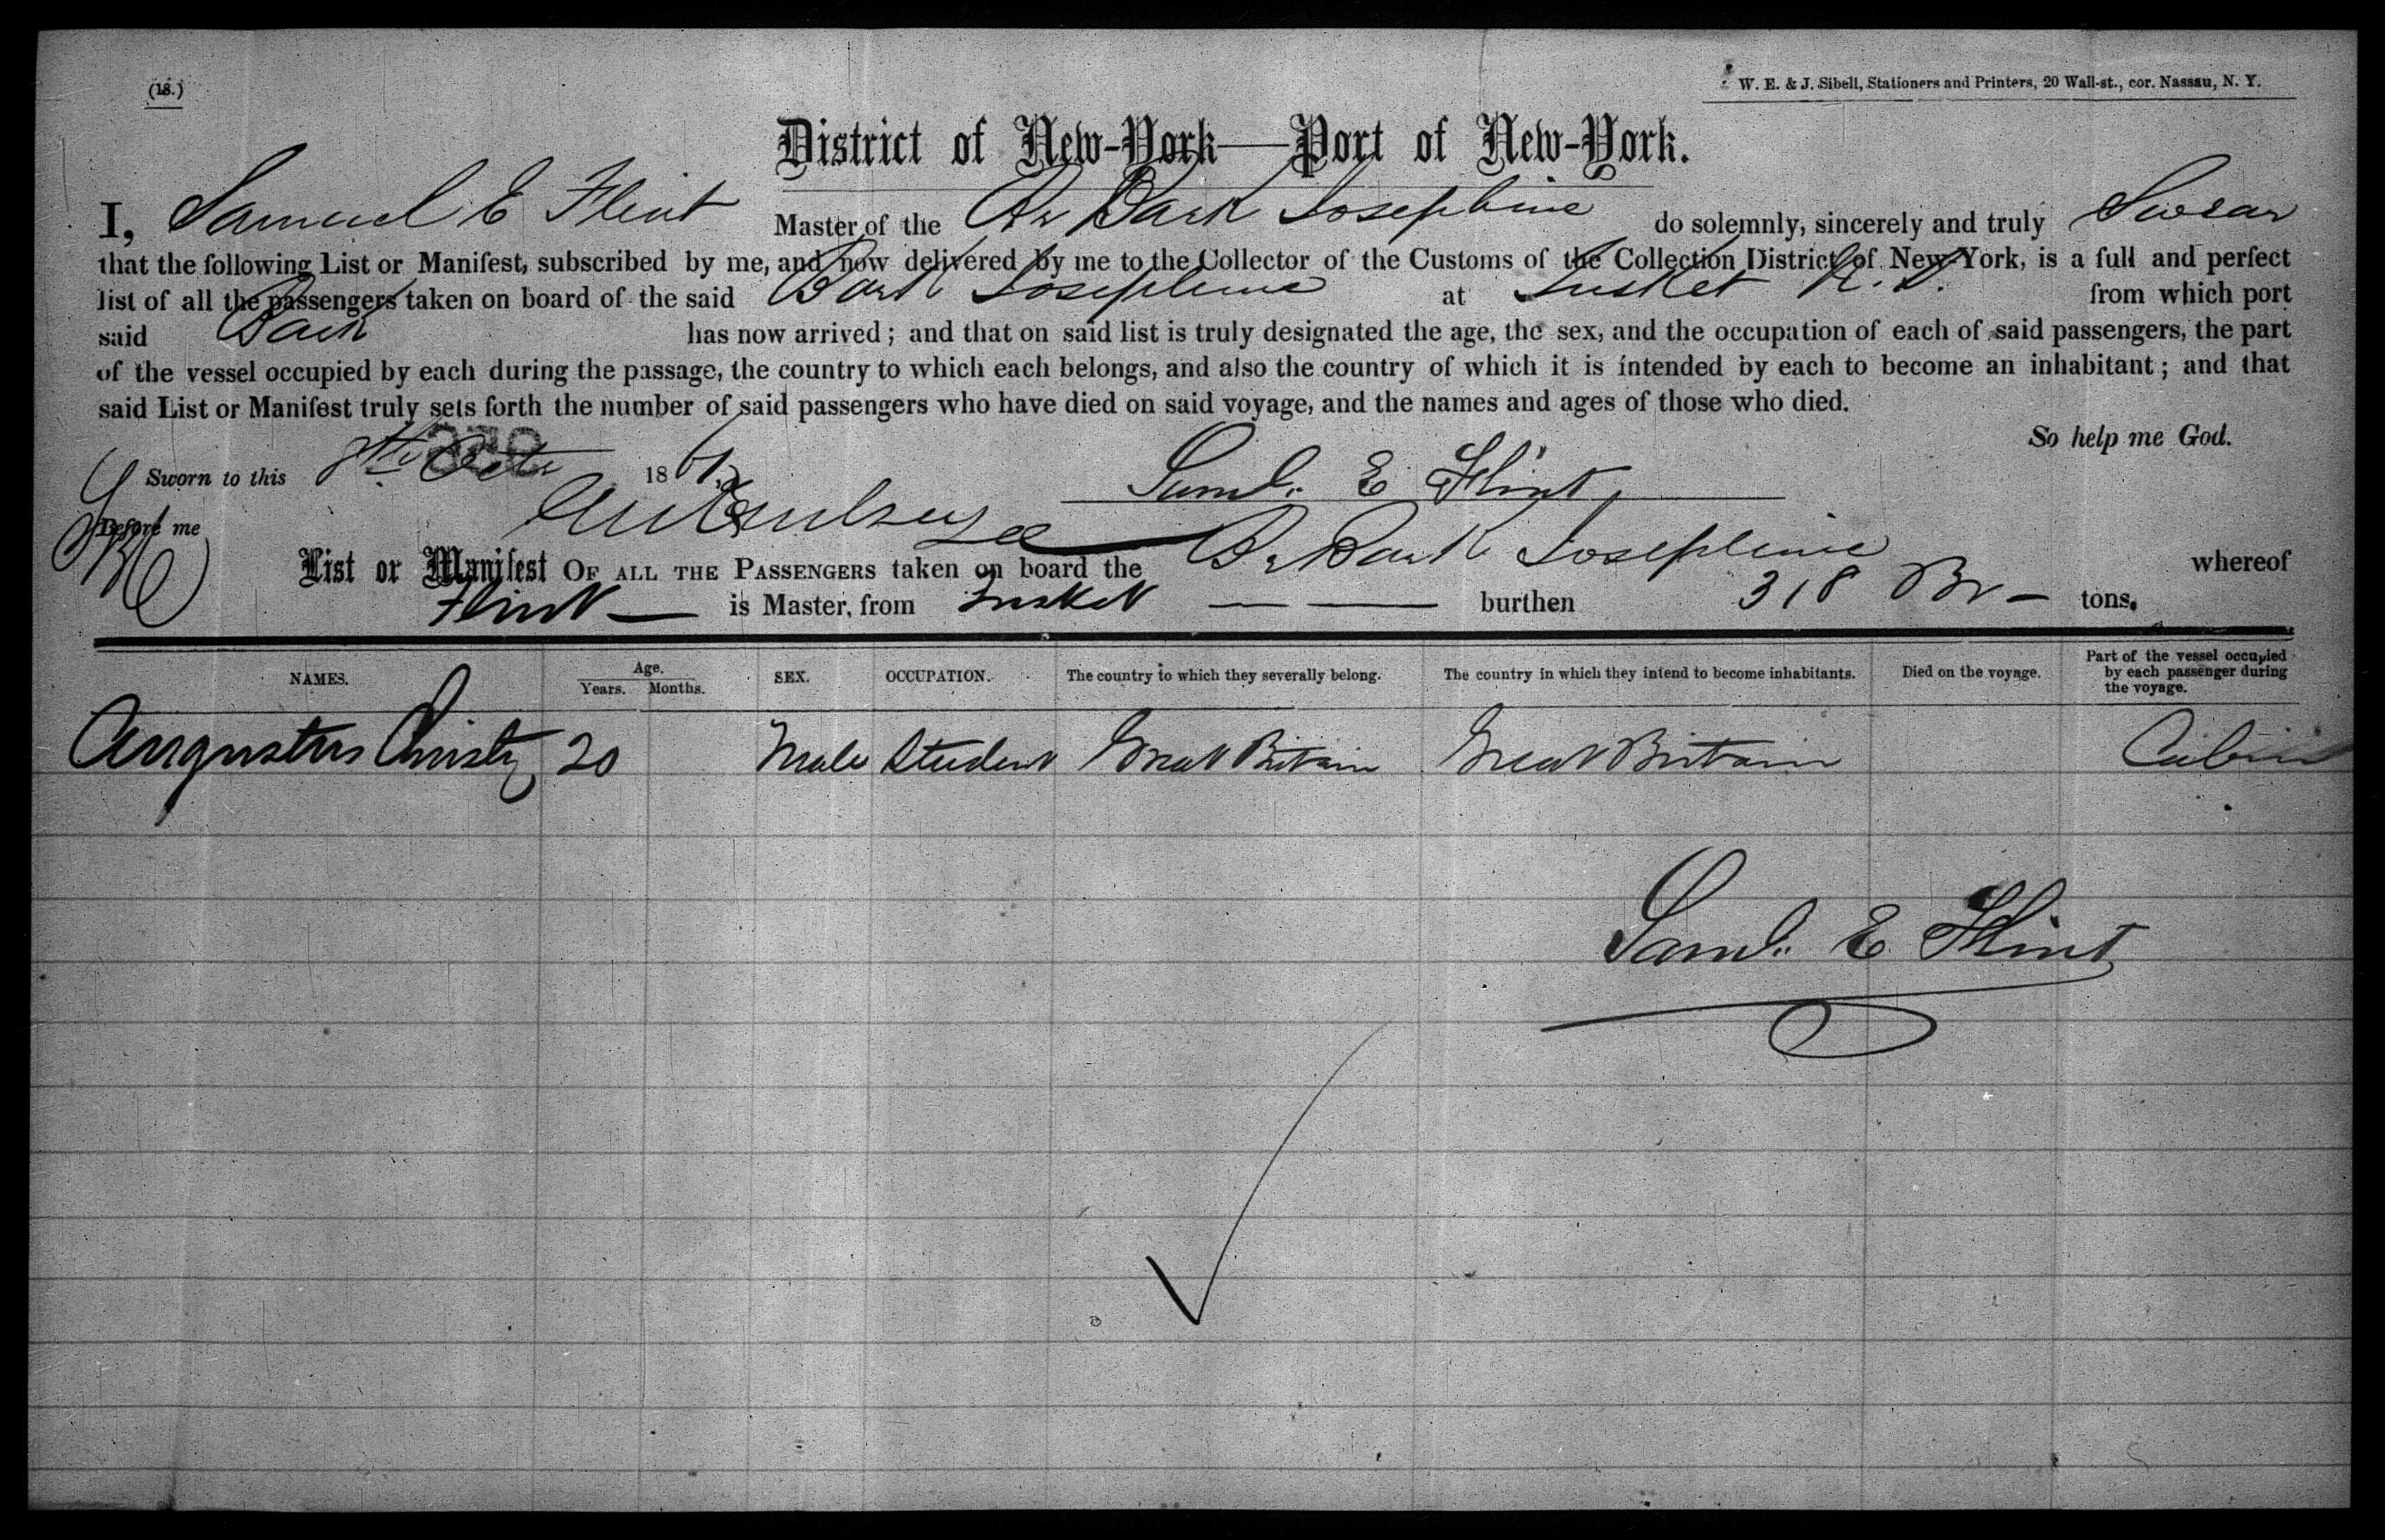 (18.)
W. E. & J. Sibell, Stationers and Printers, 20 Wall-st., cor. Nassau, N. Y.
District of New-York—Port of New-York.
I, Samuel E Flint Master of the Br Bark Josephine do solemnly, sincerely and truly Swear
that the following List or Manifest, subscribed by me, and now delivered by me to the Collector of the Customs of the Collection District of New York, is a full and perfect
list of all the passengers taken on board of the said Bark Josephine at Tusket N.S. from which port
said Bark has now arrived; and that on said list is truly designated the age, the sex, and the occupation of each of said passengers, the part
of the vessel occupied by each during the passage, the country to which each belongs, and also the country of which it is intended by each to become an inhabitant; and that
said List or Manifest truly sets forth the number of said passengers who have died on said voyage, and the names and ages of those who died.
So help me God.
Sworn to this 8th Oct 1867
Saml. E Flint
Before me
List or Manifest OF ALL THE PASSENGERS taken on board the Br Bark Josephine whereof
Flint — is Master, from Tusket — — burthen 318 Br — tons.
NAMES. Age. Years. Months. SEX. OCCUPATION. The country to which they severally belong. The country in which they intend to become inhabitants. Died on the voyage. Part of the vessel occupied by each passenger during the voyage.
Augustus Christy 20 Male Student Great Britain Great Britain Cabin
Saml. E Flint